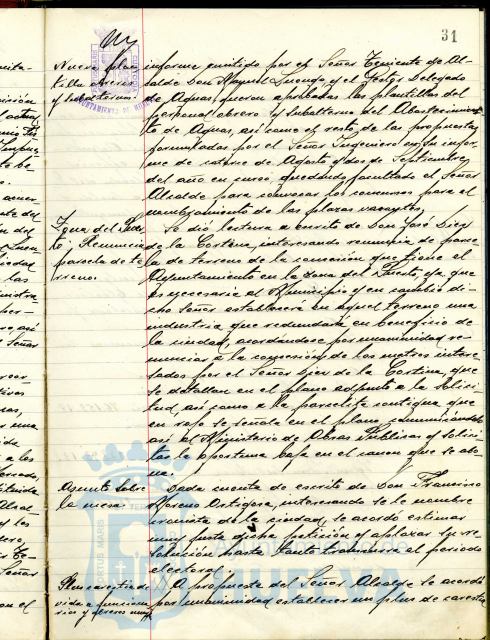 31
Nueva plan
tilla obreros
y subalternos
informe emitido por el Señor Teniente de Al-
calde Don Manuel y el Gestor Delegado
de Aguas, fueron aprobadas las plantillas del
personal obrero y subalterno del Abastecimien-
to de Aguas, así como el resto de las propuestas
formuladas por el Señor Ingeniero en su infor-
me de catorce de Agosto y dos de Septiembre
del año en curso quedando facultado el Señor
Alcalde para convocar los concursos para el
nombramiento de las plazas vacantes.
Zona del Puer
to; Renuncia
parcela de te
rreno.
Se dió lectura a escrito de Don José Diez
de la Cortina, interesando renuncia de parce-
la de terreno de la concesión que tiene el
Ayuntamiento en la Zona del Puerto, ya que
es necesaria al Municipio y en cambio di-
cho Señor establecerá en aquel terreno una
industria que redundará en beneficio de
la ciudad, acordándose por unanimidad re-
nunciar a la concesión de los metros intere-
sados por el Señor Diez de la Cortina, que
se detallan en el plano adjunto a la solici-
tud, así como a la parcelita contigua que
en rojo se señala en el plano, comunicándolo
así al Ministerio de Obras Públicas y solici-
tar la oportuna baja en el canon que se abo-
na.
Asunto sobre
la mesa.
Dada cuenta de escrito de Don Francisco
Moreno Ortega, interesando se le nombre
cronista de la ciudad, se acordó estimar
muy justa dicha petición y aplazar su re-
solución hasta tanto transcurra el período
electoral.
Plus carestía de
vida a funciona
rios y obreros
A propuesta del Señor Alcalde se acordó
por unanimidad establecer un plus de carestía
Ayuntamiento de
HUELVA
PORTUS MARIS